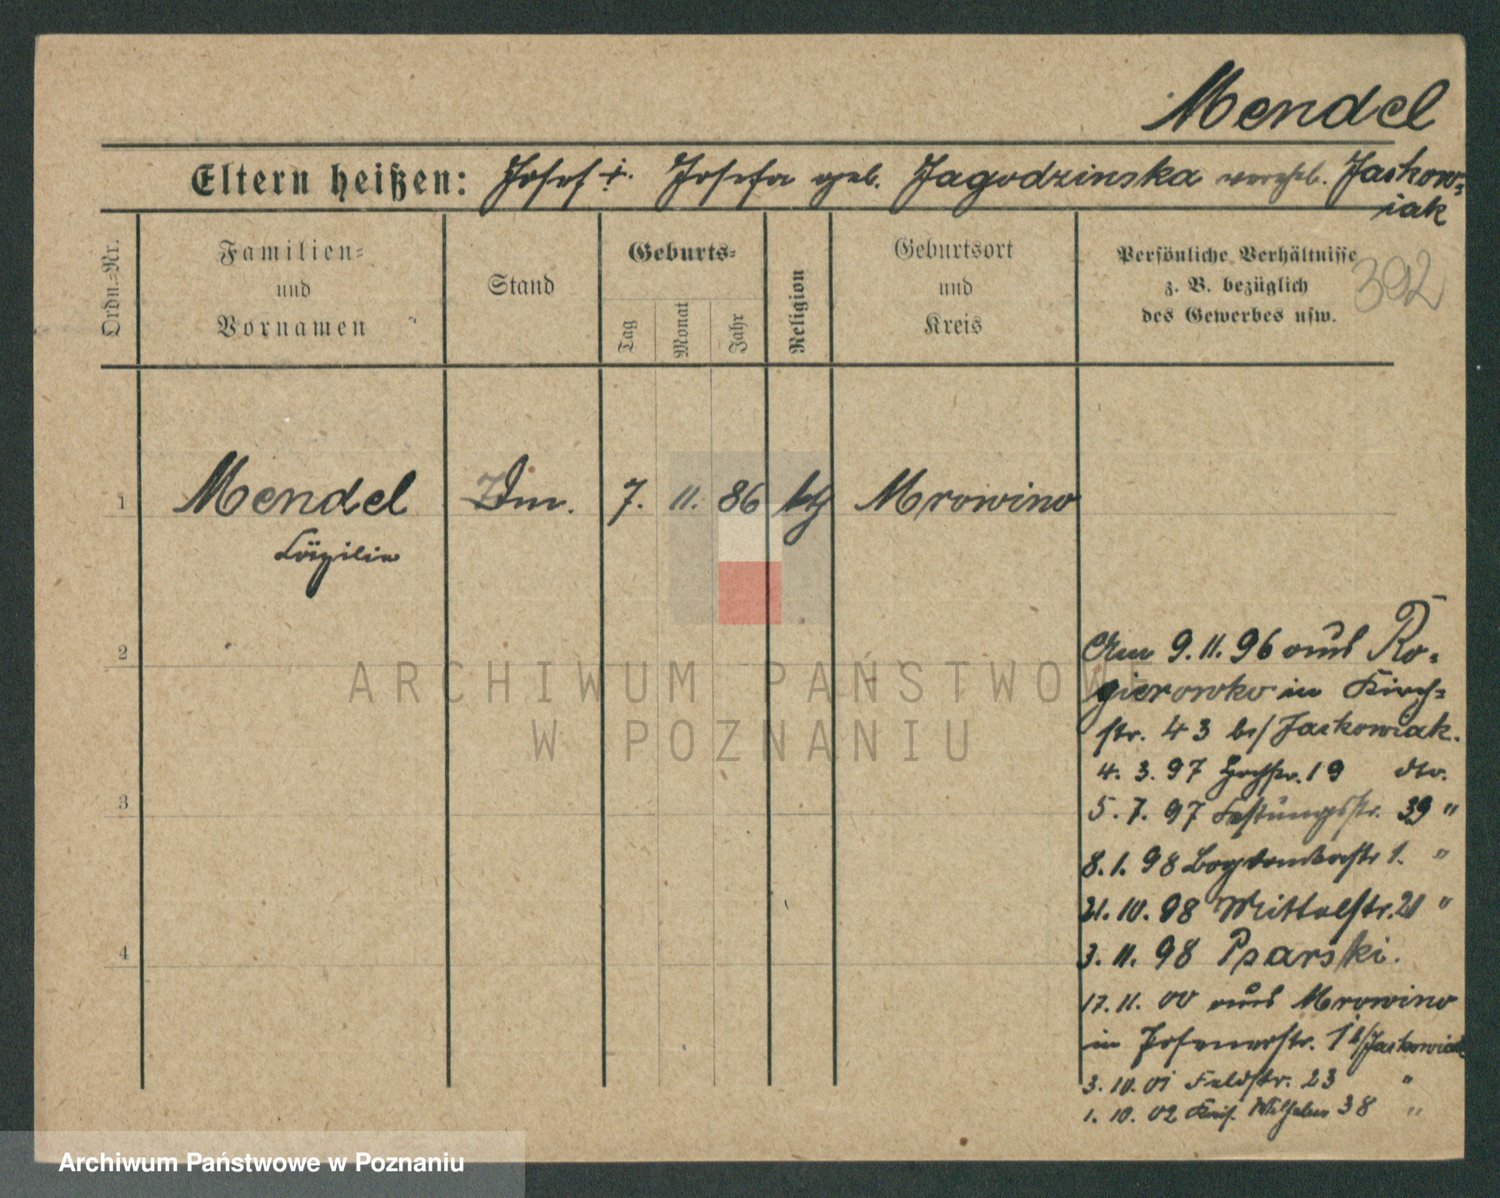 Mendel
Eltern heißen: Josef u. Josefa geb. Jagodzinska verehl. Jaskow-
iak
Ordn.-Nr.
Familien-
und
Vornamen
Stand
Geburts-
Tag
Monat
Jahr
Religion
Geburtsort
und
Kreis
Persönliche Verhältnisse
z. B. bezüglich
des Gewerbes usw.
392
1 Mendel 7. 11. 86 kth Mrowino
Cäzilie
2
Am 9.11.96 aus Ro-
gierowko in Kirch-
str. 43 b/ Jaskowiak.
4. 3. 97 Hochstr. 19 dto.
3
5. 7. 97 Festungsstr. 39 "
8. 1. 98 1. "
21. 10. 98 Mittelstr. 21 "
4
3. 11. 98 Psarski.
17. 11. 00 aus Mrowino
in Posenerstr. 1 b/Jaskowiak
3. 10. 01 Feldstr. 23 "
1. 10. 02 Wilhelm 38 "
ARCHIWUM PAŃSTWOWE
W POZNANIU
Archiwum Państwowe w Poznaniu